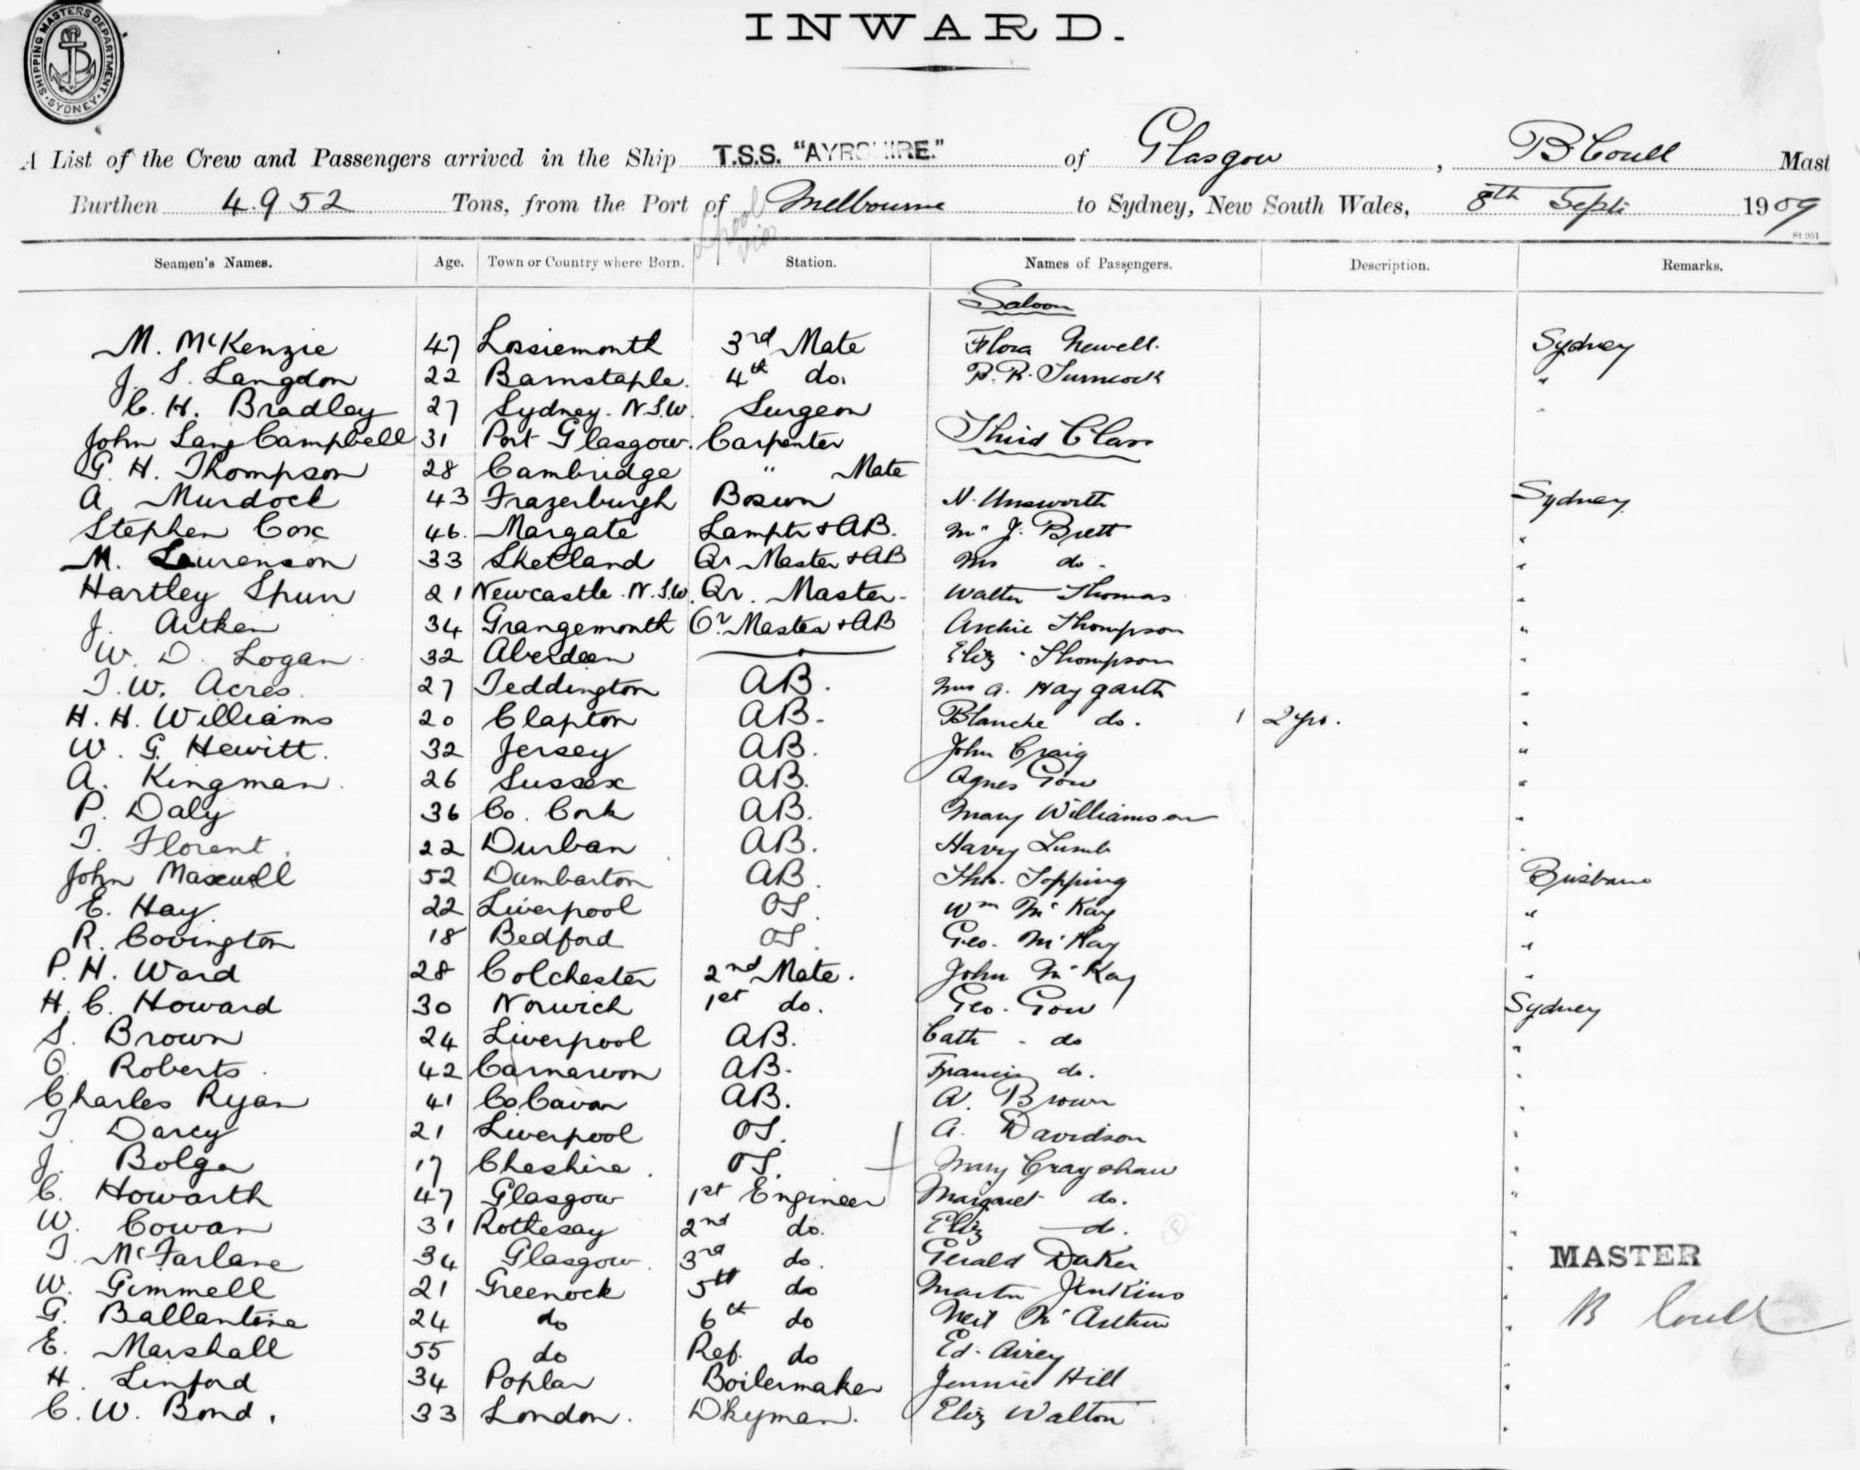 SHIPPING MASTERS DEPARTMENT. SYDNEY
INWARD.
A List of the Crew and Passengers arrived in the Ship T.S.S. "AYRSHIRE." of Glasgow, B Coull Mast
Burthen 4952 Tons, from the Port of Melbourne to Sydney, New South Wales, 8th Sept 1909
L'pool via
Seamen's Names. Age. Town or Country where Born. Station. Names of Passengers. Description. Remarks.
Saloon
M. McKenzie 47 Lossiemouth 3rd Mate Flora Newell. Sydney
J. S. Langdon 22 Barnstaple. 4th do. R. Turncock "
C. H. Bradley 27 Sydney. N.S.W. Surgeon "
John Lang Campbell 31 Port Glasgow. Carpenter Third Class
G. H. Thompson 28 Cambridge " Mate
A Murdock 43 Frazerburgh Bosun N. Unsworth Sydney
Stephen Cox 46. Margate Lamptr & AB. Mr J. Brett "
M. Laurenson 33 Shetland Qr Master & AB Mrs do. "
Hartley Spurr 21 Newcastle. N.S.W. Qr. Master. Walter Thomas "
J. Aitken 34 Grangemouth Qr Master & AB Archie Thompson "
W. D. Logan 32 Aberdeen Eliz Thompson "
T. W. Acres. 27 Teddington AB. Mrs A. Haygarth "
H. H. Williams 20 Clapton AB. Blanche do. 1 2 yrs. "
W. G. Hewitt. 32 Jersey AB. John Craig "
A. Kingman. 26 Sussex AB. Agnes Gow "
P. Daly 36 Co. Cork AB. Mary Williamson "
T. Florent. 22 Durban AB. Harry Lumb "
John Maxwell 52 Dumbarton AB. Thos. Topping Brisbane
E. Hay. 22 Liverpool OS. Wm McKay "
R. Covington 18 Bedford OS. Geo. McKay "
P. H. Ward 28 Colchester 2nd Mate. John McKay "
H. C. Howard 30 Norwich 1st do. Geo. Gow Sydney
S. Brown 24 Liverpool AB. Cath do "
O. Roberts. 42 Carnarvon AB. Francis do. "
Charles Ryan 41 Co Cavan AB. A. Brown "
T. Darcy 21 Liverpool OS. A. Davidson "
J. Bolger 17 Cheshire. OS. Mary Crayshaw "
C. Howarth 47 Glasgow 1st Engineer Margaret do. "
W. Cowan 31 Rothesay 2nd do. Eliz do. "
T. McFarlane 34 Glasgow. 3rd do. Gerald Daker " MASTER
W. Gemmell 21 Greenock 5th do Martin Jenkins "
G. Ballantine 24 do 6th do Neil McArthur " B Coull
E. Marshall 55 do Ref. do Ed. Airey "
H. Linford 34 Poplar Boilermaker Jennie Hill "
C. W. Bond. 33 London. Dkyman. Eliz Walton "